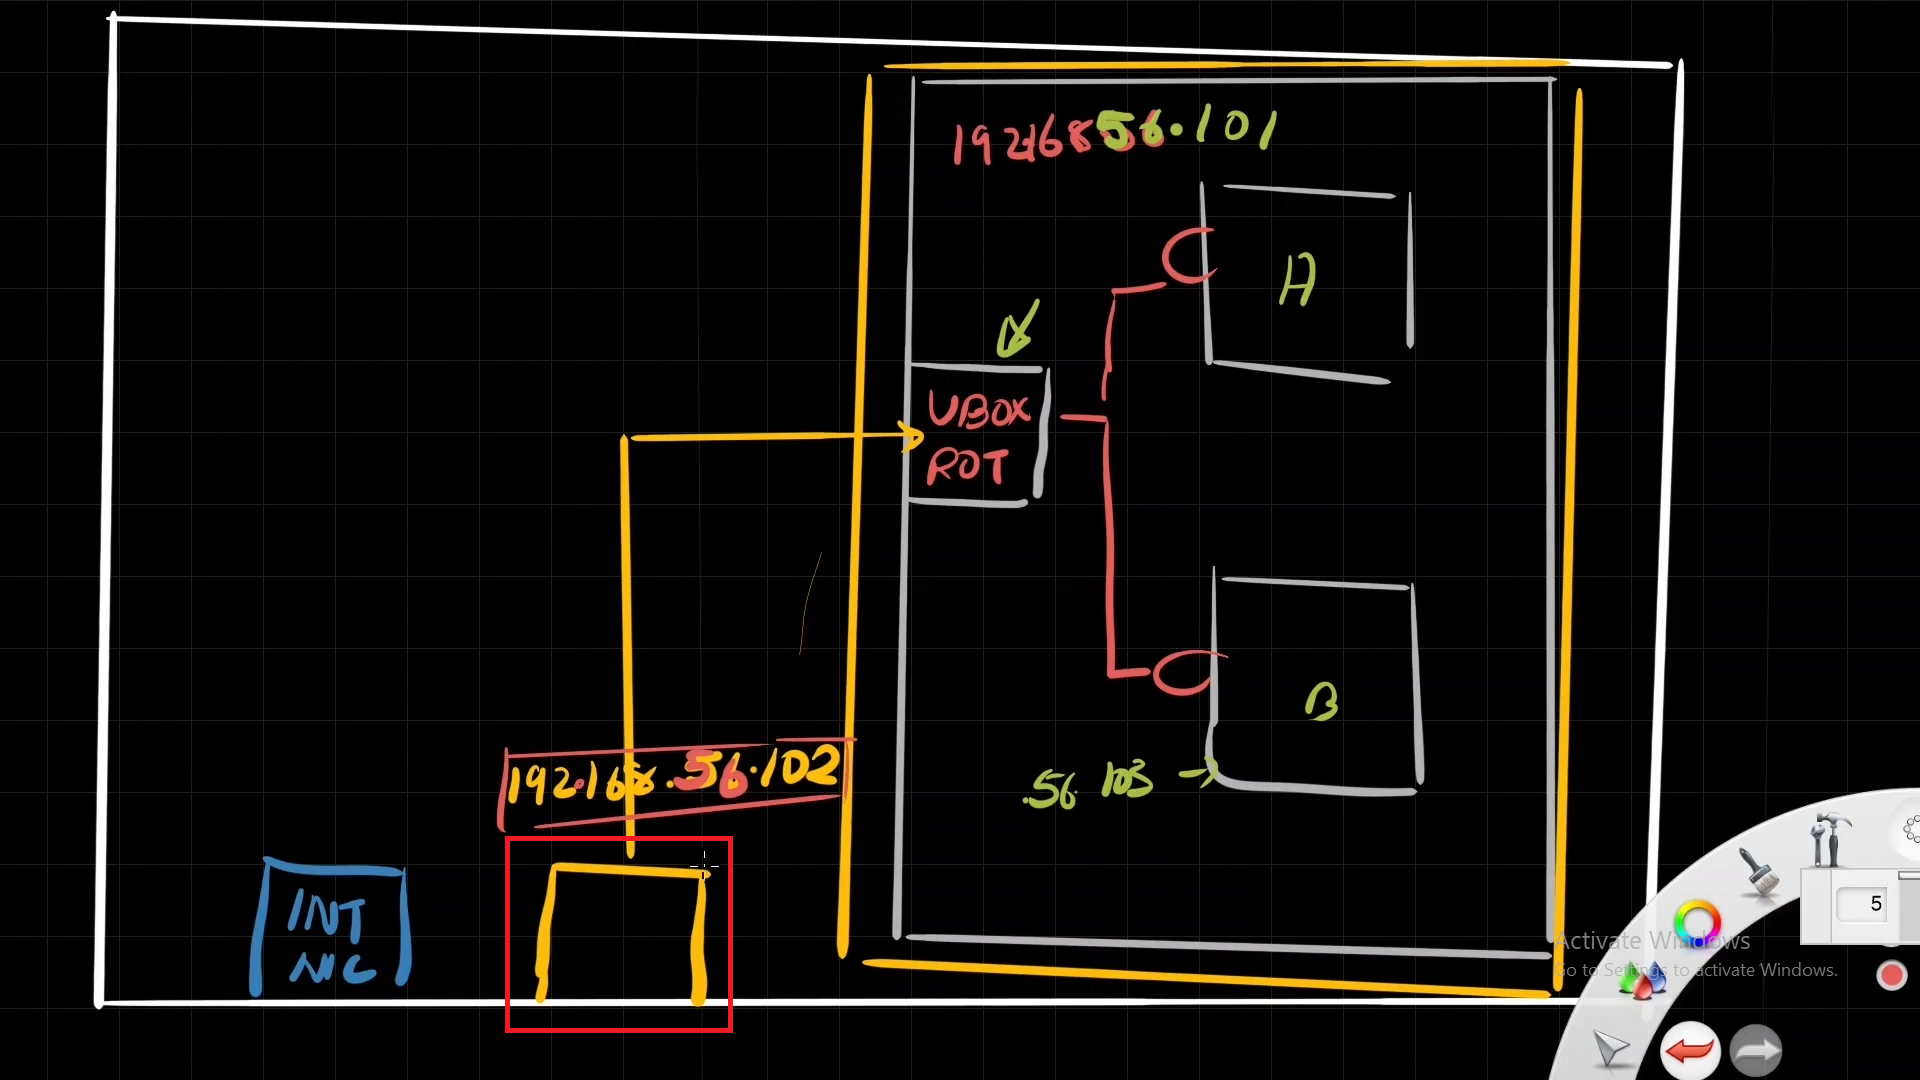 192.168.56.101
A
VBOX
ROT
192.168.56.102
B
.56.103
INT
NIC
5
Activate Windows
Go to Settings to activate Windows.